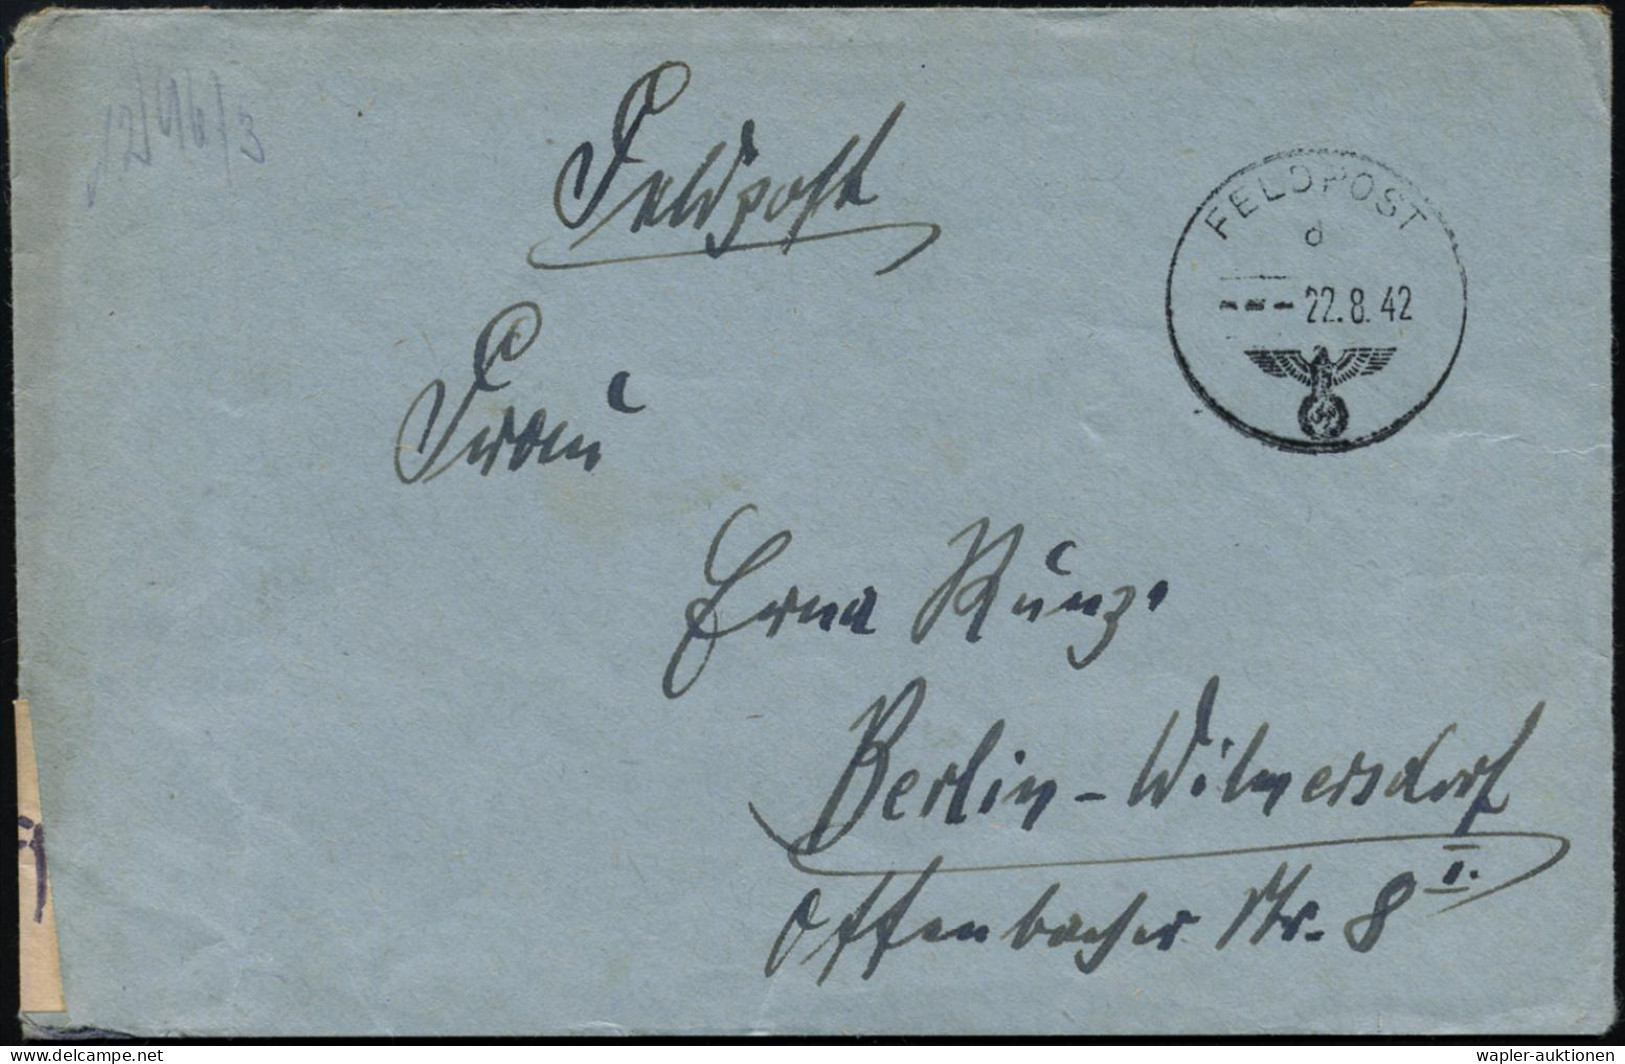 12/96/3
Feldpost
FELDPOST
d
--- 22.8.42
Frau
Erna Kunze
Berlin-Wilmersdorf
Offenbacher Str. 8 I.
delcampe.net
wapler-auktionen